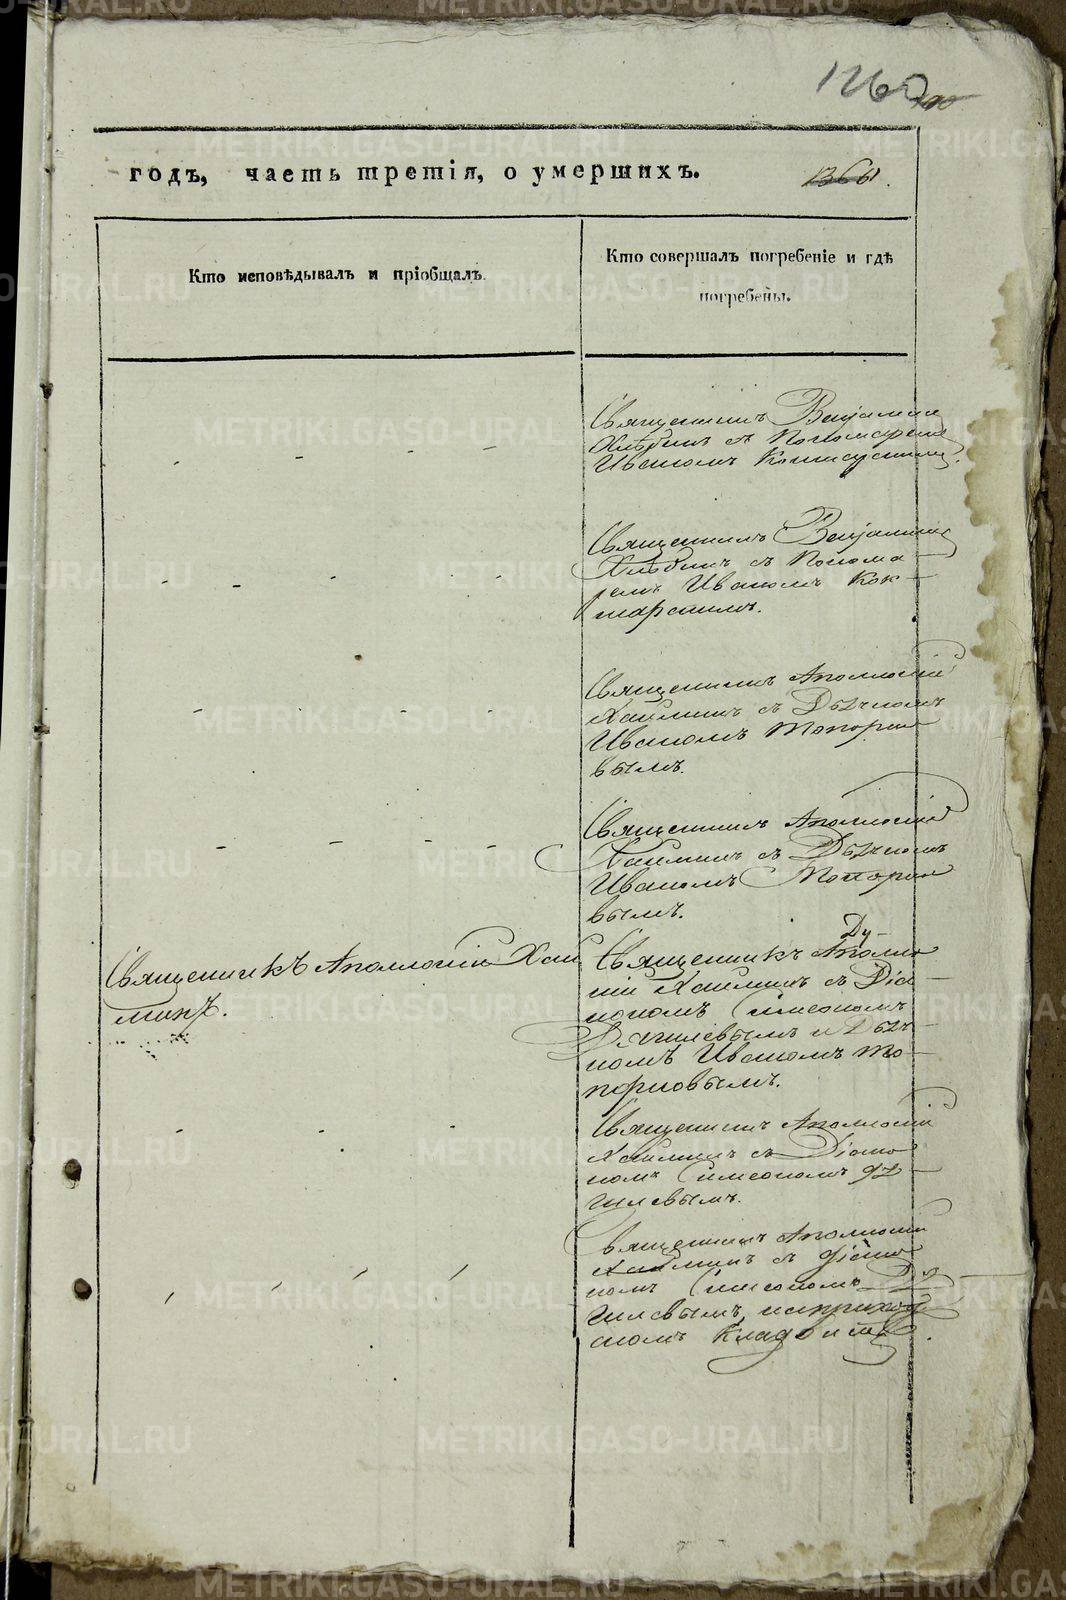 1260
годъ, часть третія, о умершихъ.
Кто исповѣдывалъ и пріобщалъ.
Кто совершалъ погребеніе и гдѣ
погребены.
Священникъ Веніаминъ
Хлѣбинъ съ Пономаремъ
Иваномъ
Священникъ Веніаминъ
Хлѣбинъ съ Понома
ремъ Иваномъ Кок
шарскимъ.
Священникъ Аполлоній
съ Дьячкомъ
Иваномъ Топорко
вымъ.
Священникъ Аполлоній
съ Дьячкомъ
Иваномъ Топорко
вымъ.
Священникъ Аполлоній
Священникъ Аполло
ній съ Діа
кономъ Симеономъ
и Дьяч
комъ Иваномъ То
порковымъ.
Священникъ Аполлоній
съ Діако
номъ Симеономъ Дя
гилевымъ.
Священникъ Аполлоній
съ Діако
номъ Симеономъ Дя
гилевымъ, на приход
скомъ Кладбищѣ.
METRIKI.GASO-URAL.RU